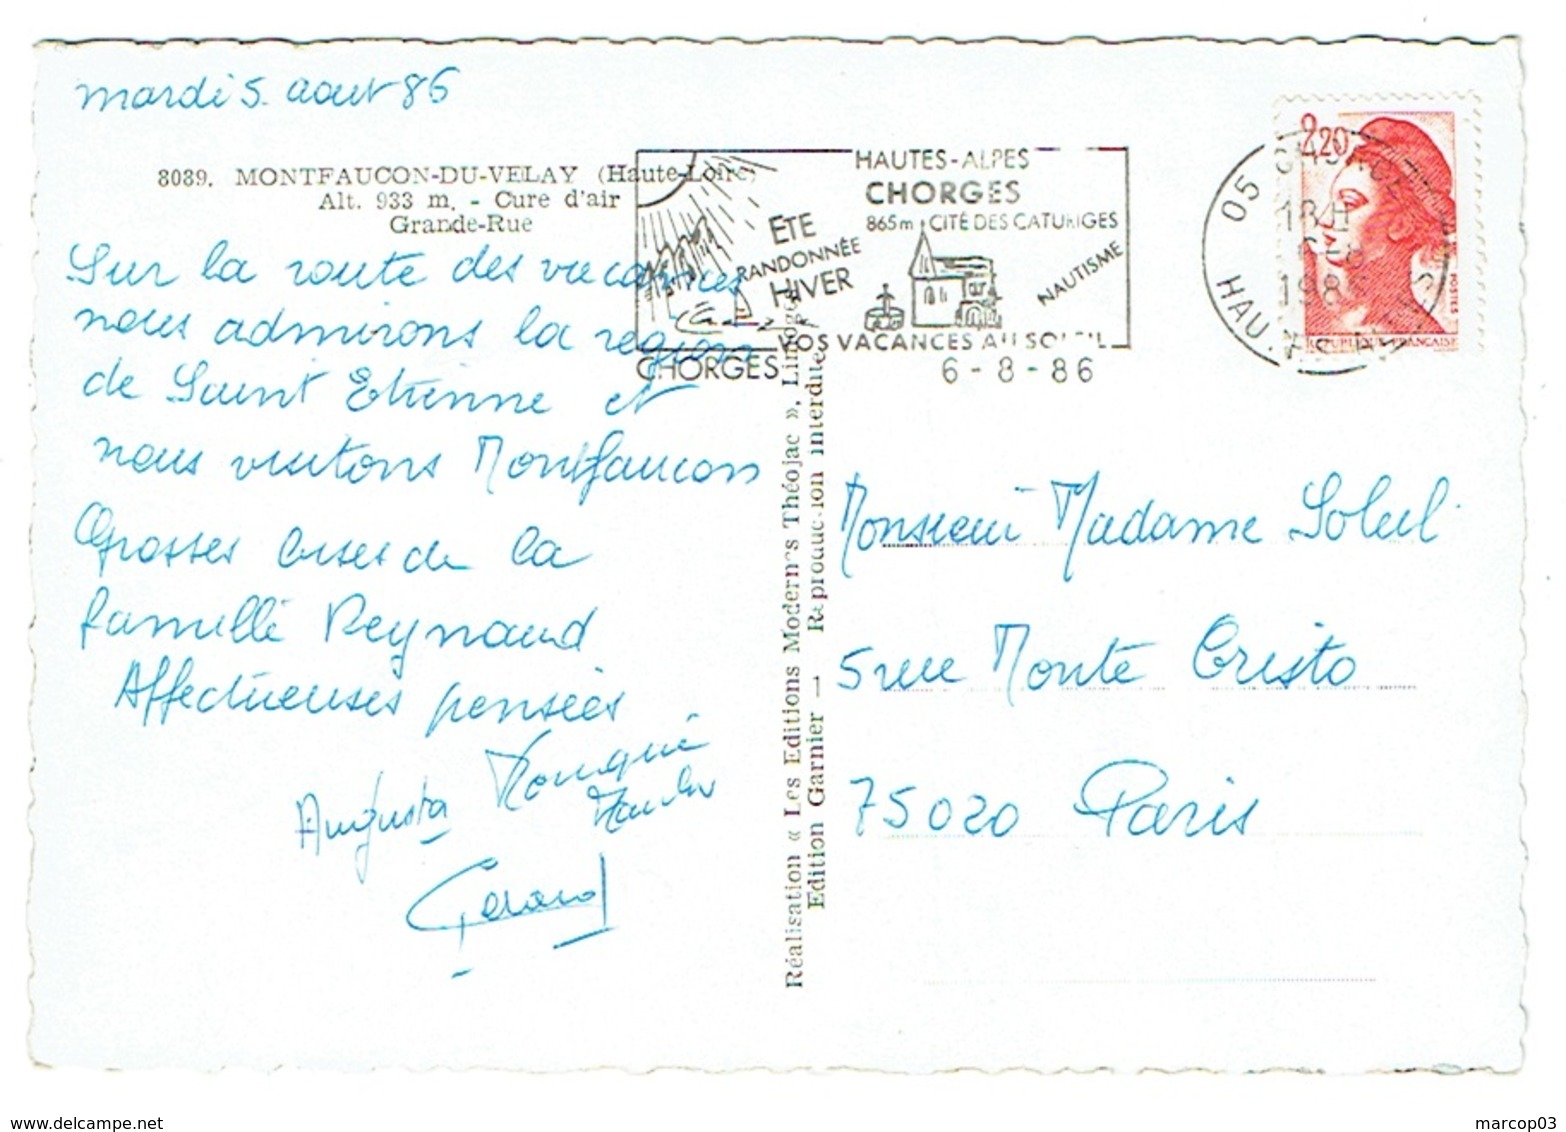 mardi 5. aout 86
8089. MONTFAUCON-DU-VELAY (Haute-Loire)
Alt. 933 m. - Cure d'air
Grande-Rue
Sur la route des vacances
nous admirons la region
de Saint Etienne et
nous visitons Montfaucon
Grosses bises de la
famille Reynaud
Affectueuses pensées
Augusta
Gérard
HAUTES-ALPES
CHORGES
865m CITÉ DES CATURIGES
ETE
RANDONNÉE
HIVER
NAUTISME
VOS VACANCES AU SOLEIL
CHORGES
6-8-86
2,20
POSTES
REPUBLIQUE FRANÇAISE
05 CHORGES
18H
6-8
1986
Réalisation « Les Editions Modernes Théojac », Limoges
Edition Garnier — Reproduction interdite
Monsieur Madame Soleil
5 rue Monte Cristo
75020 Paris
www.delcampe.net
marcop03